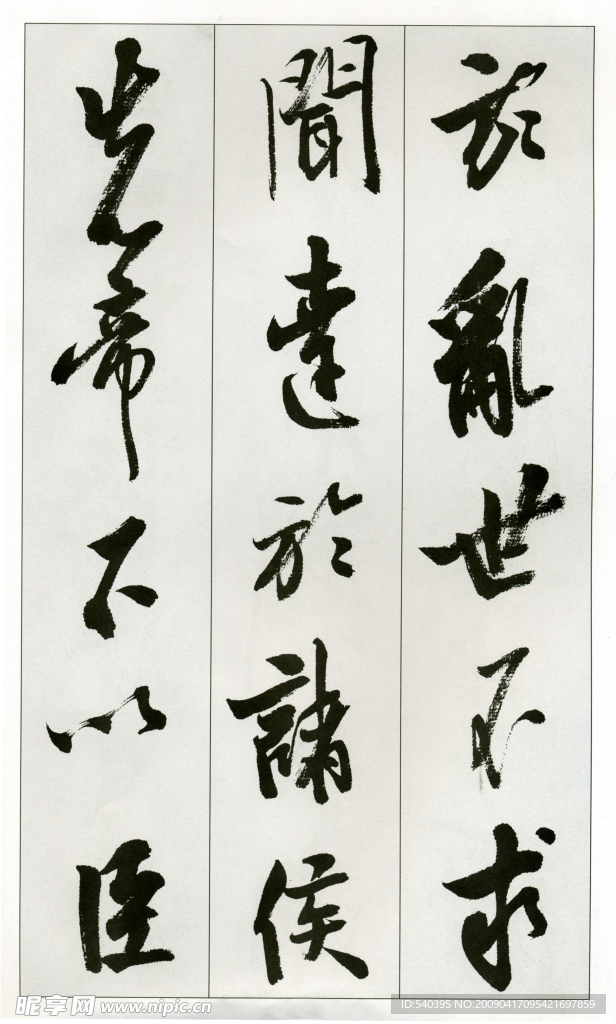 於亂世不求
聞達於諸侯
先帝不以臣
昵享网 www.nipic.cn
ID:540395 NO:20090417095421697859